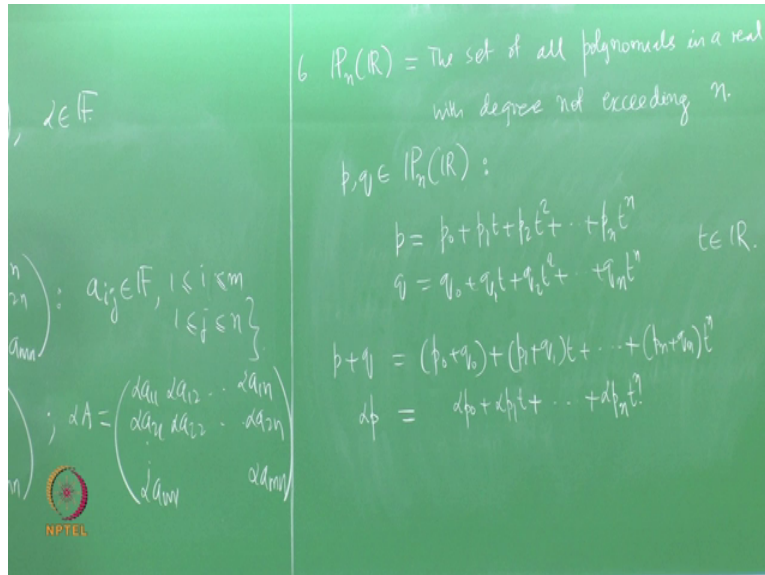 ), α∈𝔽.
n
2n
amn
: aij∈𝔽, 1≤i≤m
1≤j≤n}.
; αA = (αa11 αa12 .. αa1n
αa21 αa22 .. αa2n
αam1 αamn)
NPTEL
6 ℙn(ℝ) = The set of all polynomials in a real
with degree not exceeding n.
p,q ∈ ℙn(ℝ) :
p = p0+p1t+p2t²+⋯+pntⁿ
t∈ℝ.
q = q0+q1t+q2t²+⋯+qntⁿ
p+q = (p0+q0)+(p1+q1)t+⋯+(pn+qn)tⁿ
αp = αp0+αp1t+⋯+αpntⁿ.